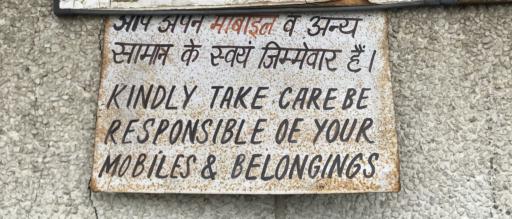 आप अपने मोबाइल व अन्य
सामान के स्वयं जिम्मेवार हैं।
KINDLY TAKE CARE BE
RESPONSIBLE OF YOUR
MOBILES & BELONGINGS